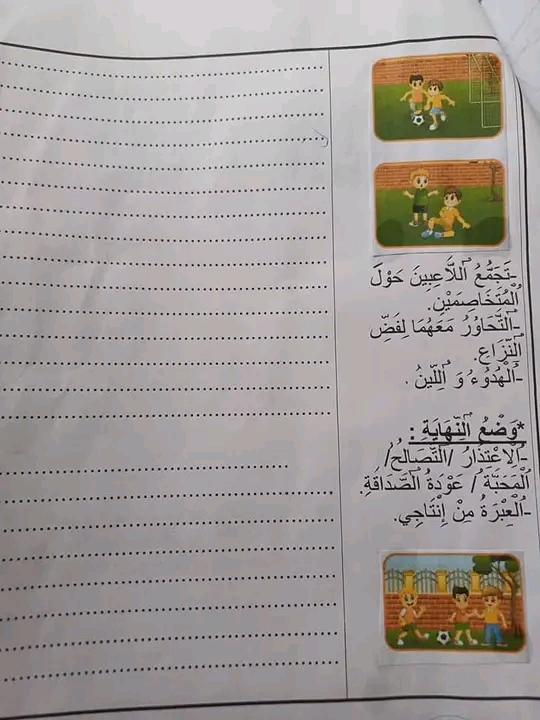 -تَجَمُّعُ اَللَّاعِبِينَ حَوْلَ
اَلْمُتَخَاصِمَيْنِ.
-اَلتَّحَاوُرُ مَعَهُمَا لِفَضِّ
اَلنِّزَاعِ.
-اَلْهُدُوءُ وَ اَللِّينُ .
*وَضْعُ اَلنِّهَايَةِ :
-اَلِاعْتِذَارُ /اَلتَّصَالُحُ/
اَلْمَحَبَّةُ / عَوْدَةُ اَلصَّدَاقَةِ.
-اَلْعِبْرَةُ مِنْ إِنْتَاجِي.